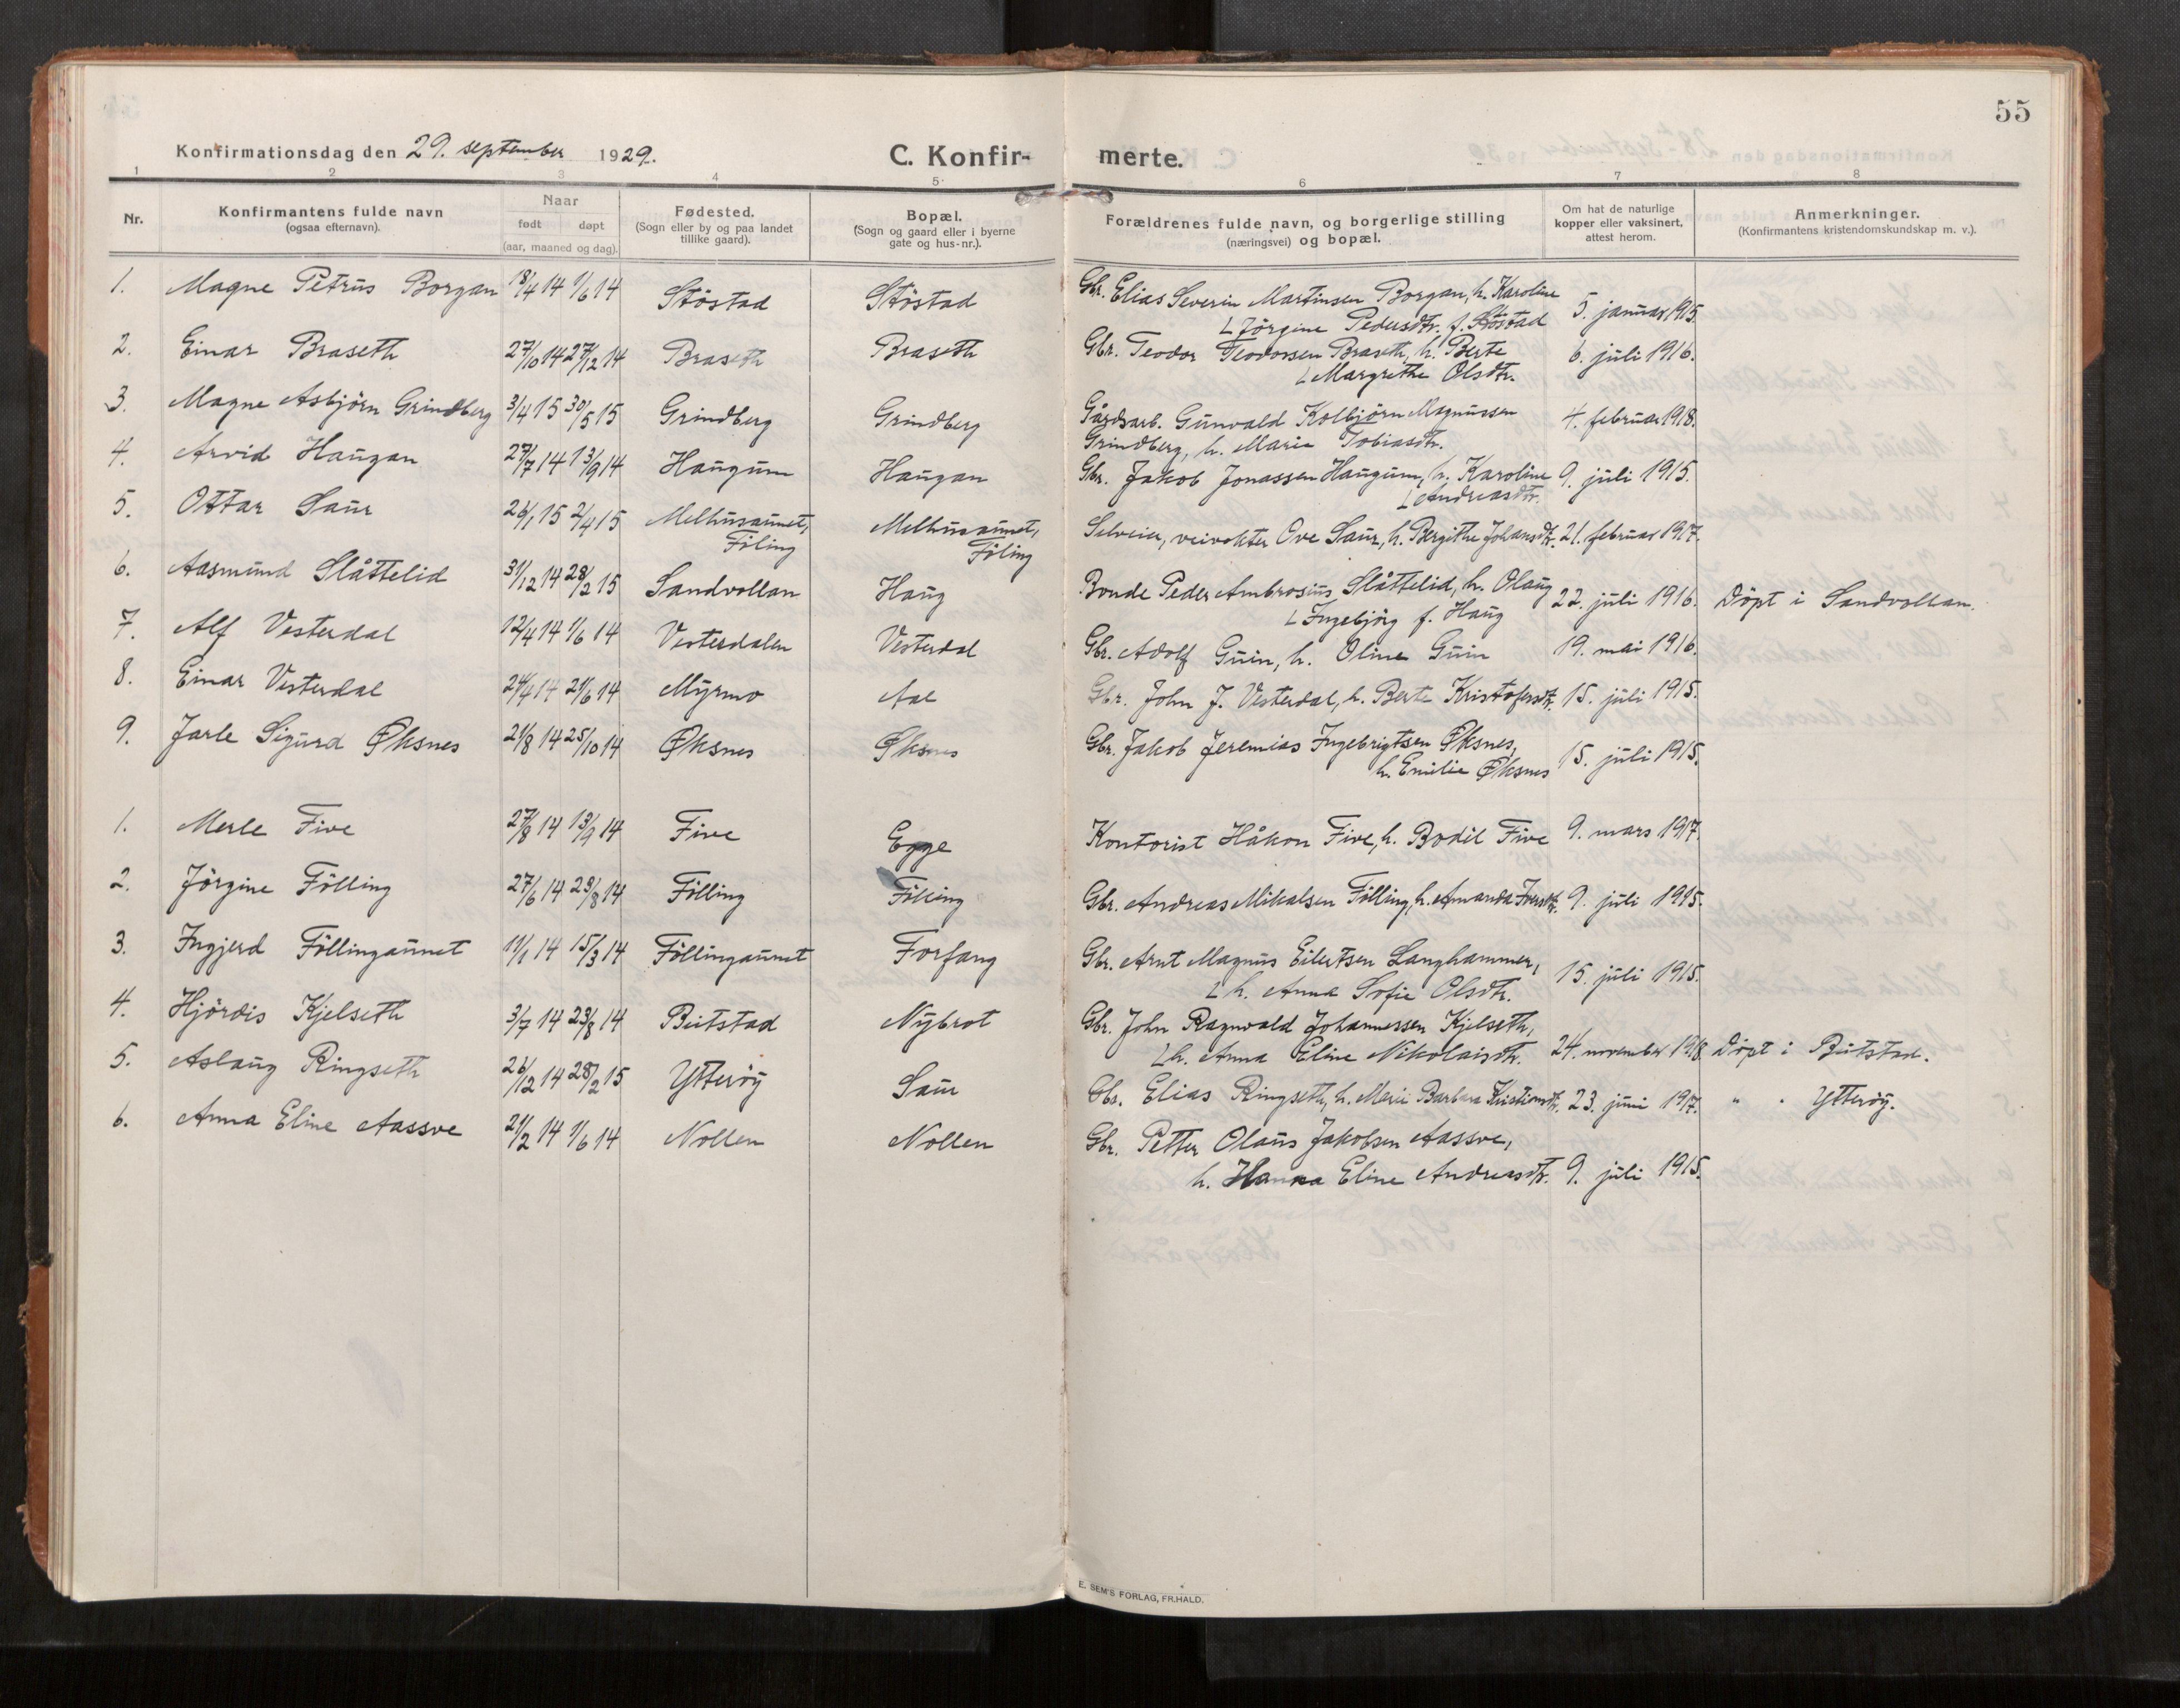 55
Konfirmationsdag den 29. september 1929. C. Konfirmerte.
1 2 3 4 5 6 7 8
Nr.
Konfirmantens fulde navn
(ogsaa efternavn).
Naar
født døpt
(aar, maaned og dag).
Fødested.
(Sogn eller by og paa landet
tillike gaard).
Bopæl.
(Sogn og gaard eller i byerne
gate og hus-nr.).
Forældrenes fulde navn, og borgerlige stilling
(næringsvei) og bopæl.
Om hat de naturlige
kopper eller vaksinert,
attest herom.
Anmerkninger.
(Konfirmantens kristendomskundskap m. v.).
1. Magne Petrus Borgan 18/4 14 1/6 14 Stöstad Stöstad Gbr. Elias Severin Martinsen Borgan, h. Karoline 5. januar 1915.
Jörgine Pedersdtr. f. Stöstad
2. Einar Braseth 27/10 14 27/12 14 Braseth Braseth Gbr. Teodor Teodorsen Braseth, h. Berte 6. juli 1916.
Margrethe Olsdtr.
3. Magne Asbjörn Grindberg 3/4 15 30/5 15 Grindberg Grindberg Gårdsarb. Gunvald Kolbjörn Magnussen 4. februar 1918.
Grindberg, h. Marie Tobiasdtr.
4. Arvid Haugan 27/7 14 13/9 14 Haugum Haugan Gbr. Jakob Jonassen Haugum, h. Karoline 9. juli 1915.
Andreasdtr.
5. Ottar Saur 26/1 15 2/4 15 Melhusaunet, Melhusaunet, Selveier, veivokter Ove Saur, h. Bergithe Johansdtr. 21. februar 1917.
Föling Föling
6. Aasmund Slåttelid 31/12 14 28/2 15 Sandvollan Haug Bonde Peder Ambrosius Slåttelid, h. Olaug 22. juli 1916. Döpt i Sandvollan.
Ingebjörg f. Haug
7. Alf Vesterdal 12/4 14 1/6 14 Vesterdalen Vesterdal Gbr. Adolf Guin, h. Oline Guin 19. mai 1916.
8. Einar Vesterdal 24/4 14 21/6 14 Myrmo Aal Gbr. John J. Vesterdal, h. Berte Kristofersdtr. 15. juli 1915.
9. Jarle Sigurd Øksnes 21/8 14 25/10 14 Øksnes Øksnes Gbr. Jakob Jeremias Ingebrigtsen Øksnes, 15. juli 1915.
h. Emilie Øksnes
1. Merle Five 27/8 14 13/9 14 Five Egge Kontorist Håkon Five, h. Bodil Five 9. mars 1917.
2. Jörgine Fölling 27/6 14 23/8 14 Fölling Fölling Gbr. Andreas Mikalsen Fölling, h. Amanda Iversdtr. 9. juli 1915.
3. Ingjerd Föllingaunet 11/1 14 15/3 14 Föllingaunet Forfang Gbr. Arnt Magnus Eilertsen Langhammer, 15. juli 1915.
h. Anna Sofie Olsdtr.
4. Hjördis Kjelseth 3/7 14 23/8 14 Beitstad Nybrot Gbr. John Ragnvald Johannessen Kjelseth,
h. Anna Eline Nikolaisdtr. 24. november 1918. Döpt i Beitstad.
5. Aslaug Ringseth 26/12 14 28/2 15 Ytteröy Saur Gbr. Elias Ringseth, h. Marie Barbara Kristiansdtr. 23. juni 1917. " " Ytteröy.
6. Anna Eline Aassve 21/2 14 1/6 14 Nollen Nollen Gbr. Petter Olaus Jakobsen Aassve,
h. Hanna Eline Andreasdtr. 9. juli 1915.
E. SEM'S FORLAG, FR.HALD.